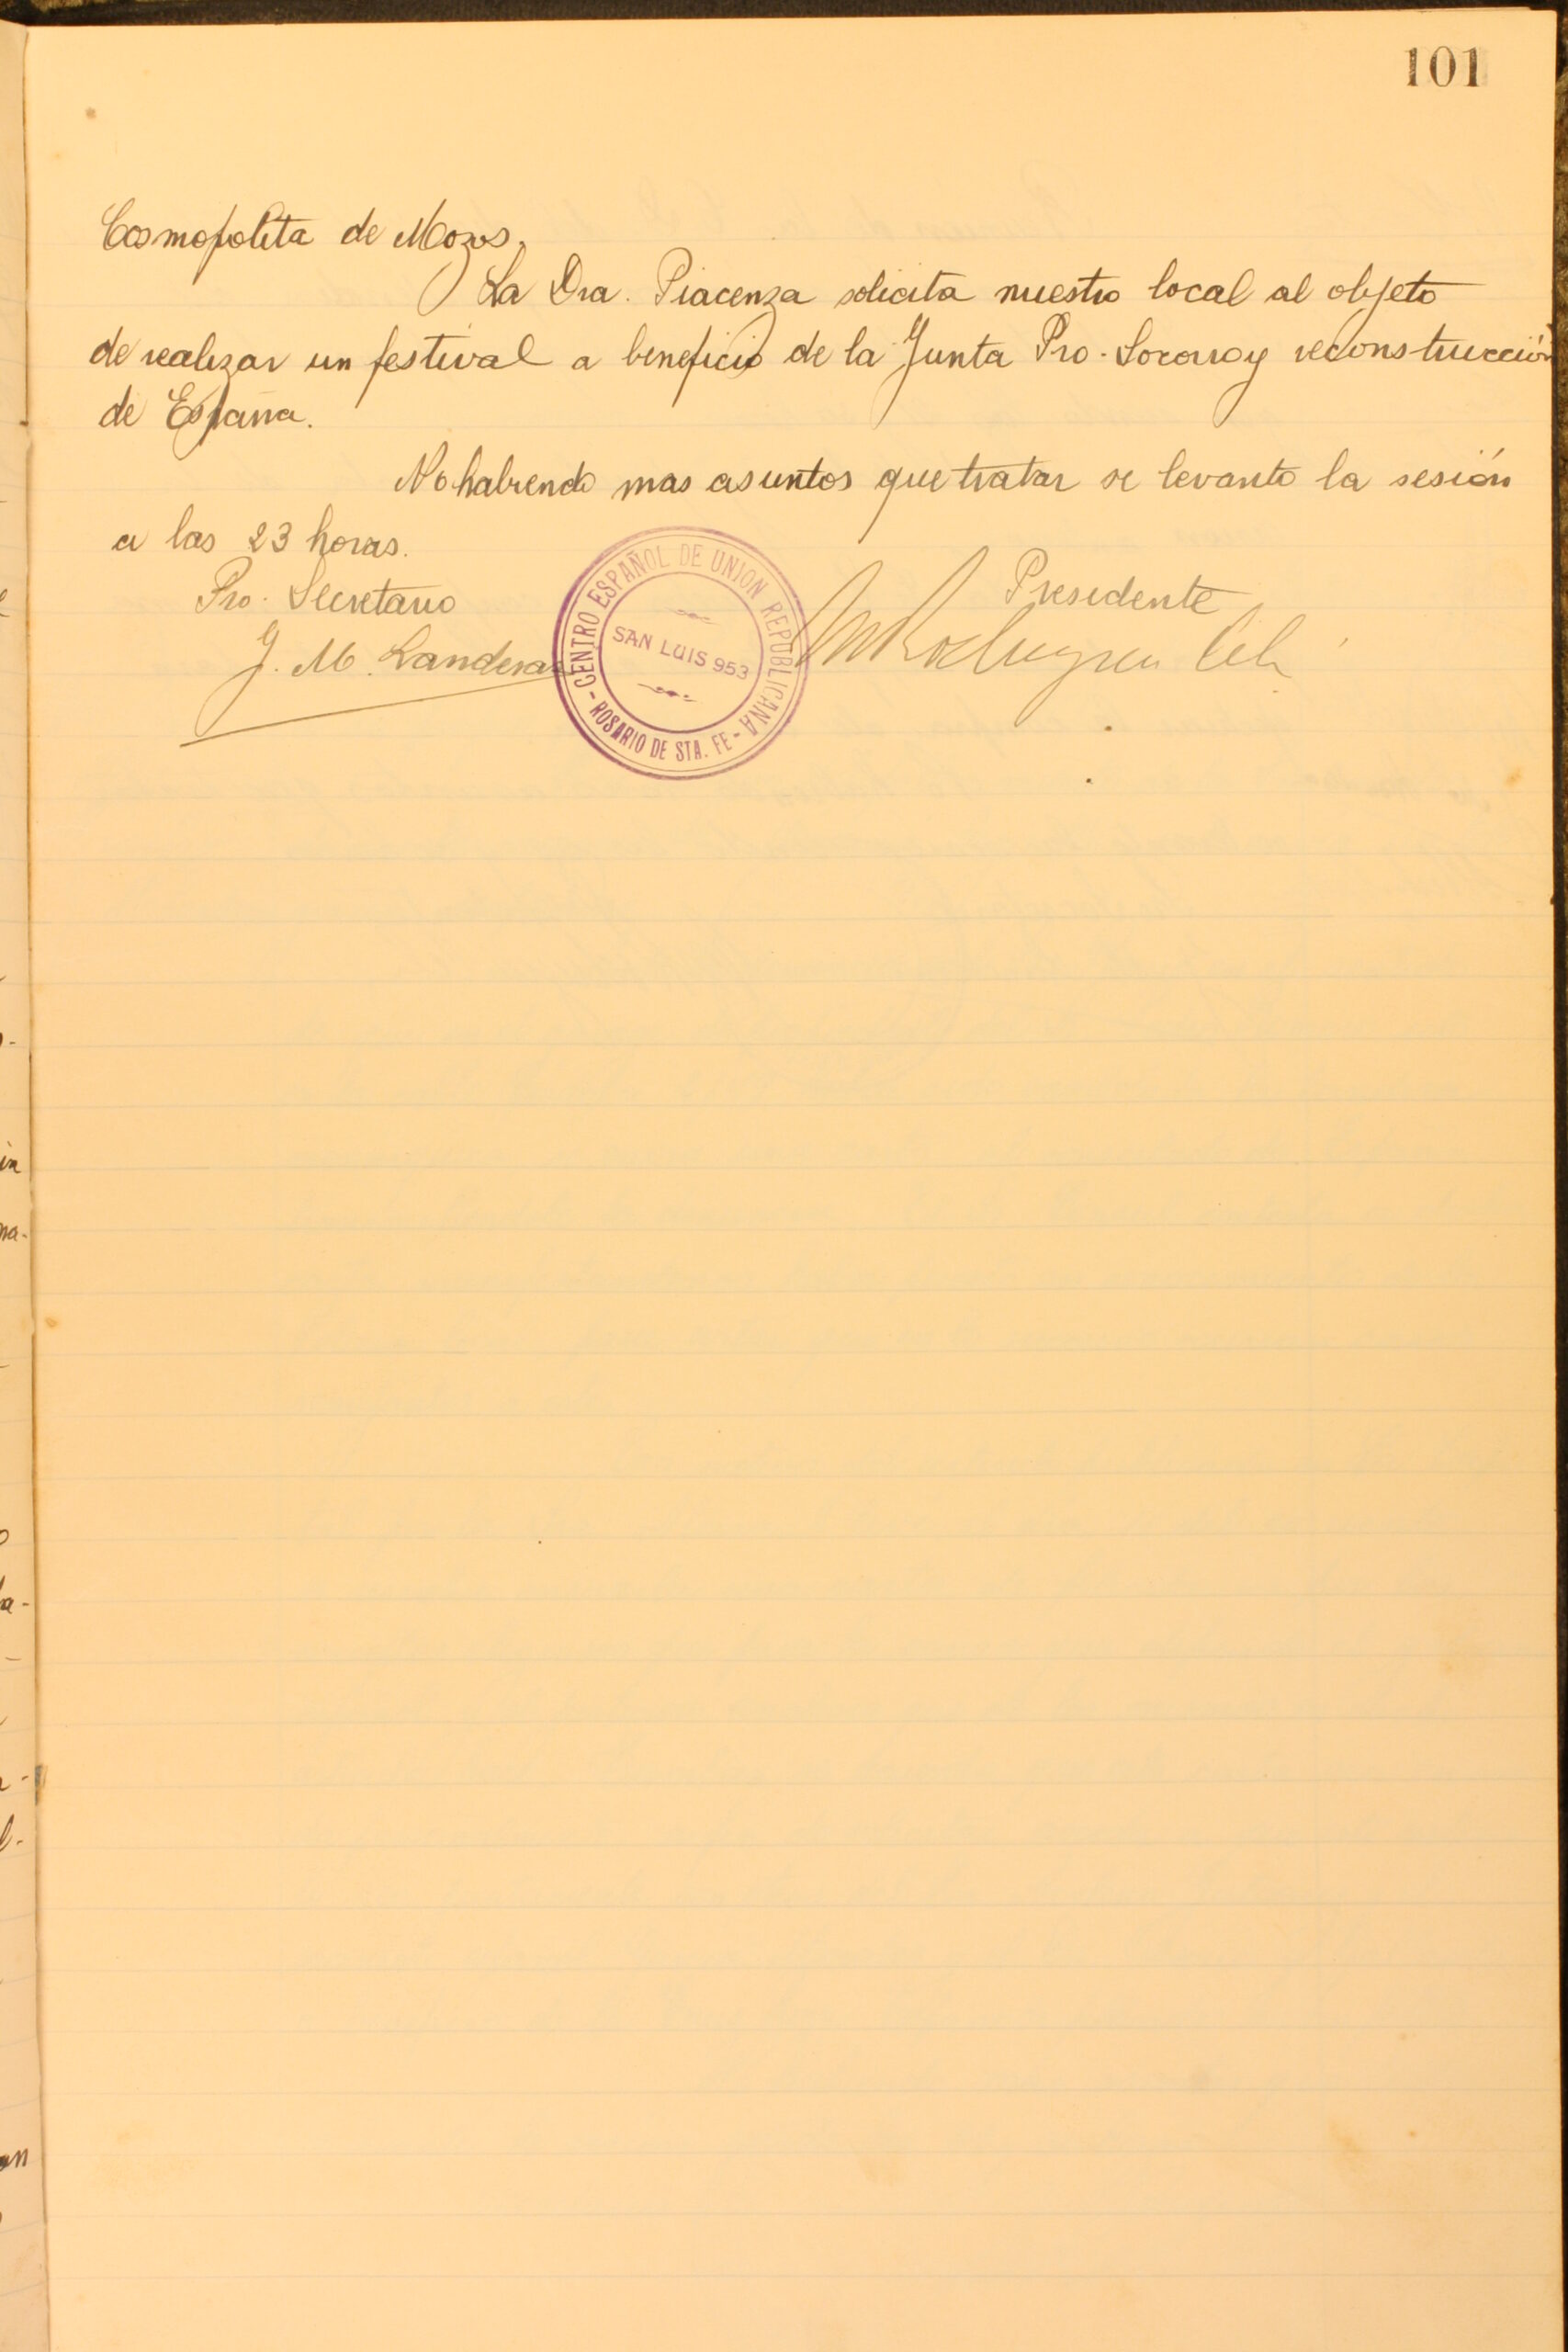 101
Cosmopolita de Mozos.
La Dra. Piacenza solicita nuestro local al objeto
de realizar un festival a beneficio de la Junta Pro-Socorro y reconstrucción
de España.
No habiendo mas asuntos que tratar se levanto la sesión
a las 23 horas.
Pro-Secretario
Presidente
J. M. Landeras
CENTRO ESPAÑOL DE UNION REPUBLICANA
SAN LUIS 953
- ROSARIO DE STA. FE -